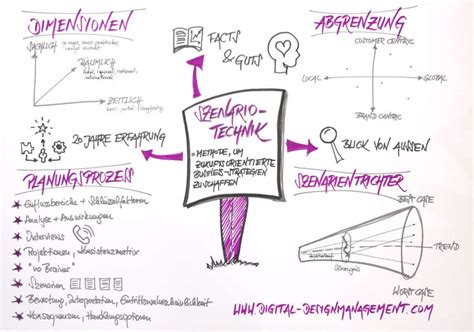 DIMENSIONEN
SACHLICH
RÄUMLICH
ZEITLICH
FACTS
& GUTS
ABGRENZUNG
CUSTOMER CENTRIC
LOCAL
GLOBAL
BRAND CENTRIC
20 JAHRE ERFAHRUNG
SZENARIO-
TECHNIK
= METHODE, UM
ZUKUNFTSORIENTIERTE
BUSINESS-STRATEGIEN
ZU SCHAFFEN
BLICK VON AUSSEN
PLANUNGSPROZESS
Einflussbereiche + Schlüsselfaktoren
Analyse + Auswirkungen
Interviews
Projektionen, Konsistenzmatrix
"no Brainer"
Szenarien
Bewertung, Interpretation, Eintrittswahrscheinlichkeit
Konsequenzen, Handlungsoptionen
SZENARIENTRICHTER
BEST CASE
TREND
WORST CASE
WWW.DIGITAL-DESIGNMANAGEMENT.COM